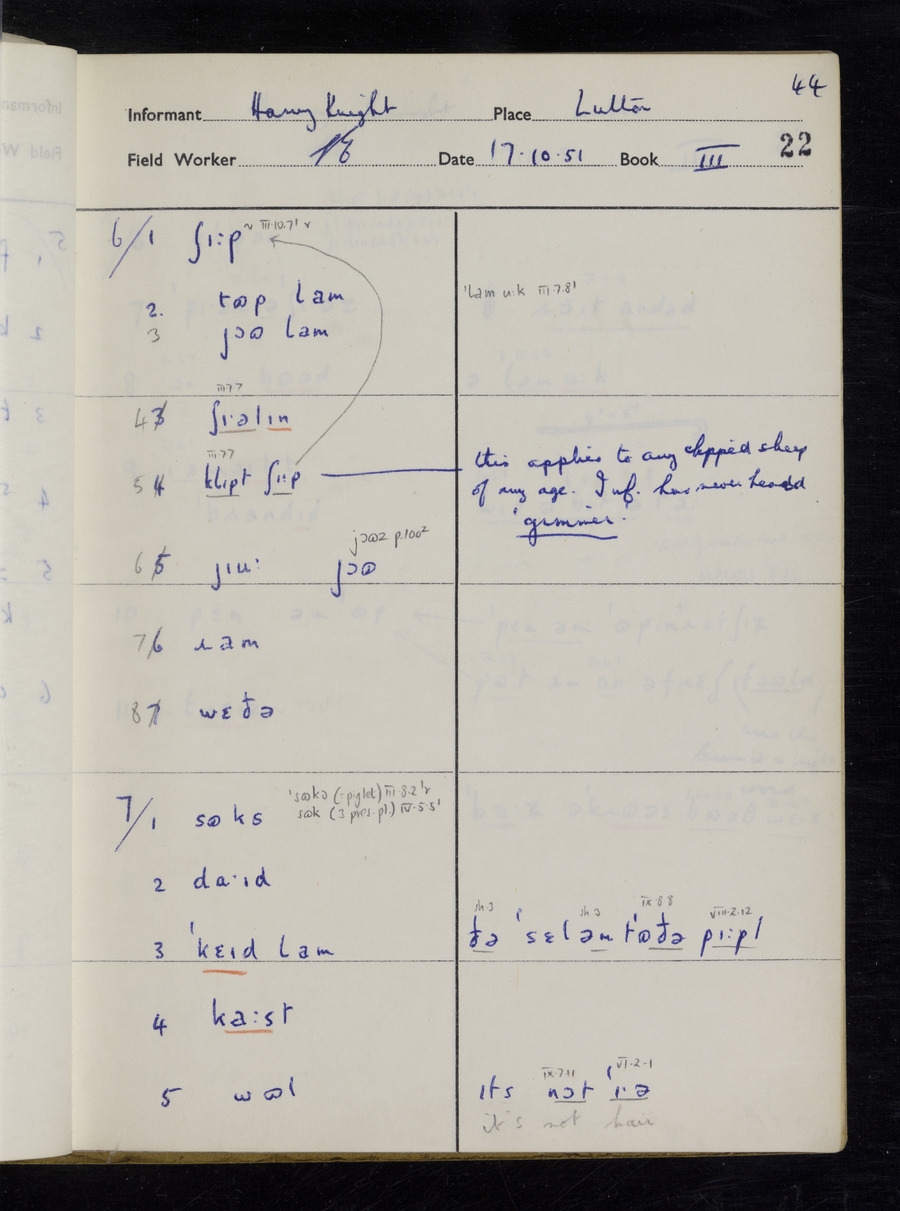 44
Informant Harry Knight Place Lutton
Field Worker Date 17.10.51 Book III 22
6/1 ʃɪ:p ~ III.10.7
2. tɷp lam 'lam u:k III.7.8'
3 jɔɷ lam
III.7.7
4 3 ʃɪ·əlɪn
III.7.7
5 4 klɪpt ʃɪ:p this applies to any clipped sheep
of any age. Inf. has never heard
'gimmer'.
jɔɷz p.100²
6 5 jɪu: jɔɷ
7 6 ɹam
8 7 wɛðə
7/1 sɷks 'sɷkə (=piglet) III.8.2
sɷk (3 pres. pl.) IV.5.5'
2 da:ɪd
sh 3 sh 3 IX.8.8 VIII.2.12
3 'kɛɪd lam ðə 'sɛləm t'ɷðə pɪ:pl
4 ka:st
IX.7.11 VI.2.1
5 wɷl ɪts nɔt ɪ·ə
it's not hair